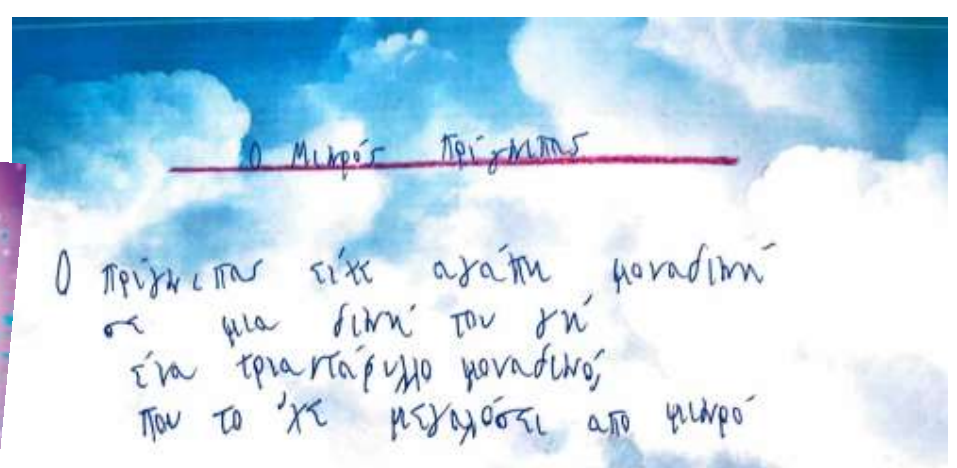 Ο Μικρός Πρίγκιπας
Ο πρίγκιπας είχε αγάπη μοναδική
σε μια δική του γή
ένα τριαντάφυλλο μοναδικό,
που το 'χε μεγαλόσει απο μικρό